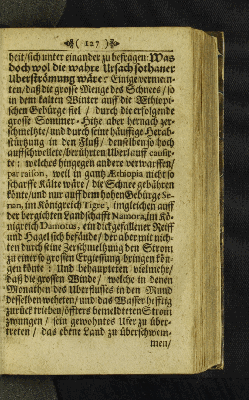 ( 127 )
heit/ sich unter einander zu befragen: Was
doch wol die wahre Ursach sothaner
Uberströmung wäre: Einige vermein-
ten/ daß die grosse Menge des Schnees/ so
in dem kalten Winter auff die Ethiopi-
schen Gebürge fiel / durch die erfolgende
grosse Sommer-Hitze aber hernach zer-
schmeltzte/ und durch seine häuffige Herab-
stürtzung in den Fluß/ denselben so hoch
auffschwellete/ berührten Uberlauff causir-
te: welches hingegen andere verwarffen/
par raison, weil in gantz Æthiopia nicht so
scharffe Kälte wäre/ die Schnee gebähren
könte/ und nur auff dem hohen Gebürge Se-
ren, im Königreich Tigre, imgleichen auff
der bergichten Landschafft Namora, im Kö-
nigreich Damotus, ein dickgefallener Reiff
und Hagel sich befände/ der aber mit nich-
ten durch seine Zerschmeltzung den Strom
zu einer so grossen Ergiessung bringen kön-
gen könte: Und behaupteten vielmehr/
daß die grossen Winde/ welche in denen
Monathen des Uberflusses in den Mund
desselben weheten/ und das Wasser hefftig
zurück trieben/ öffters bemeldeten Strom
zwungen/ sein gewohntes Ufer zu über-
treten / das ebene Land zu überschwem-
men/